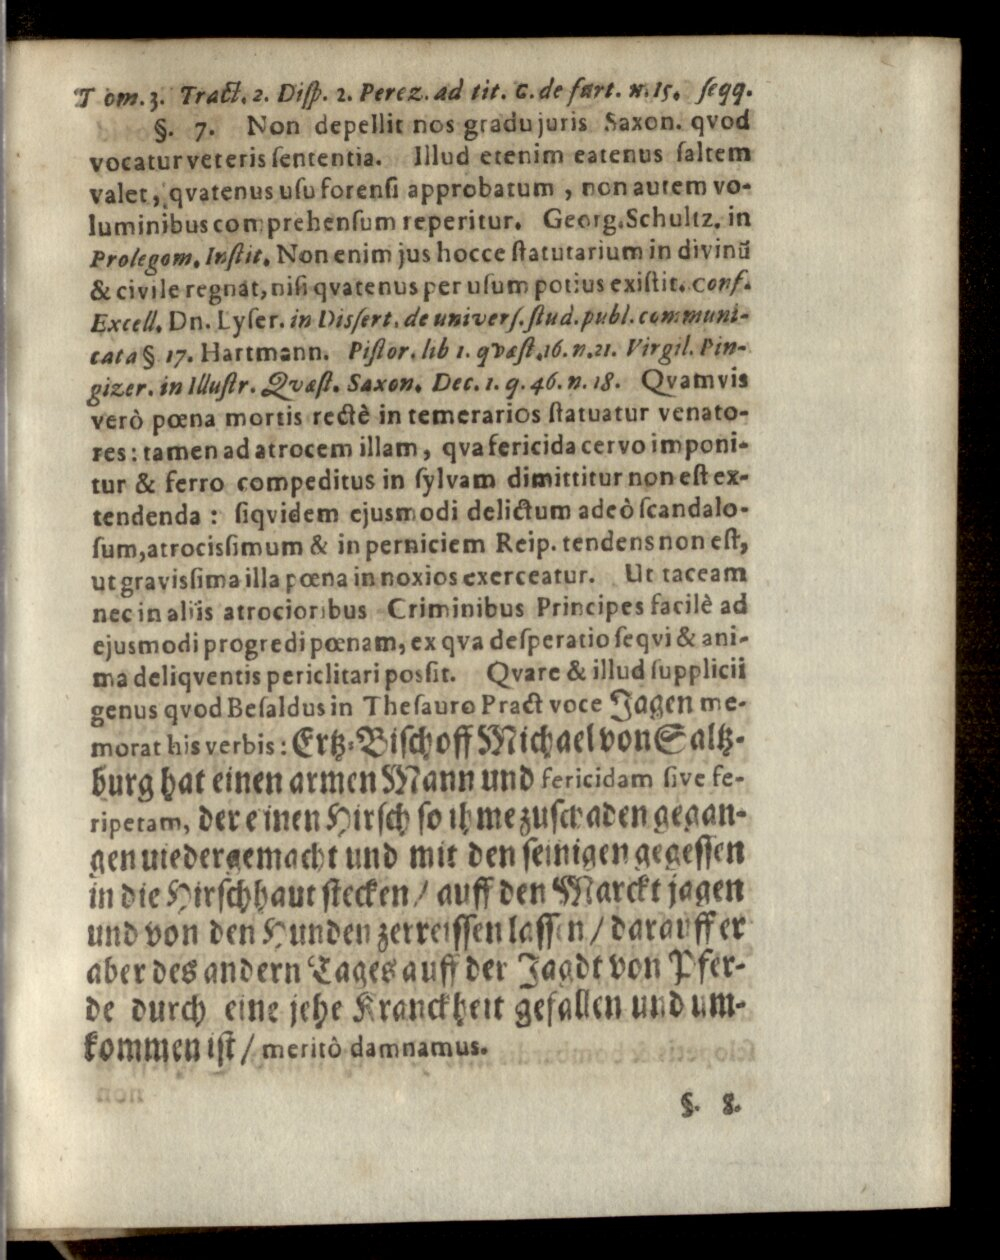 Tom. 3. Tract. 2. Disp. 2. Perez. ad tit. C. de furt. n. 15. seqq.
§. 7. Non depellit nos gradu juris Saxon. qvod
vocatur veteris ſententia. Illud etenim eatenus ſaltem
valet, qvatenus uſu forenſi approbatum, non autem vo-
luminibus comprehenſum reperitur. Georg. Schultz. in
Prolegom. Inſtit. Non enim jus hocce ſtatutarium in divinū
& civile regnat, niſi qvatenus per uſum potius exiſtit. conf.
Excell. Dn. Lyſer. in Diſſert. de univerſ. ſtud. publ. communi-
cata § 17. Hartmann. Piſtor. lib 1. qvæſt. 16. n. 21. Virgil. Pin-
gizer. in Illuſtr. Qvæſt. Saxon. Dec. 1. q. 46. n. 18. Qvamvis
verò pœna mortis rectè in temerarios ſtatuatur venato-
res: tamen ad atrocem illam, qva fericida cervo imponi-
tur & ferro compeditus in ſylvam dimittitur non eſt ex-
tendenda: ſiqvidem ejusmodi delictum adeò ſcandalo-
ſum, atrociſſimum & in perniciem Reip. tendens non eſt,
ut graviſſima illa pœna in noxios exerceatur. Ut taceam
nec in aliis atrocioribus Criminibus Principes facilè ad
ejusmodi progredi pœnam, ex qva deſperatio ſeqvi & ani-
ma deliqventis periclitari poſſit. Qvare & illud ſupplicii
genus qvod Beſaldus in Theſauro Pract voce Jagen me-
morat his verbis: Ertz-Biſchoff Michael von Saltz-
burg hat einen armen Mann und fericidam ſive fe-
ripetam, der einen Hirſch ſo ihme zuſchaden gegan-
gen niedergemacht und mit den ſeinigen gegeſſen
in die Hirſchhaut ſtecken / auff den Marckt jagen
und von den Hunden zerreiſſen laſſen / darauff er
aber des andern Tages auff der Jagdt von Pfer-
de durch eine jehe Kranckheit gefallen und um-
kommen iſt / meritò damnamus.
§. 8.